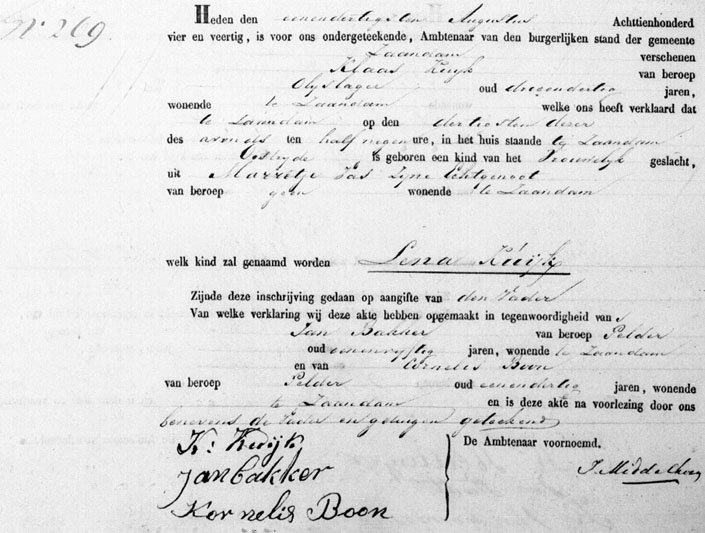 No 269.
Heden den eenendertigsten Augustus Achttienhonderd
vier en veertig, is voor ons ondergeteekende, Ambtenaar van den burgerlijken stand der gemeente
Zaandam verschenen
Klaas Kuijk van beroep
Olyslager oud drieendertig jaren,
wonende te Zaandam welke ons heeft verklaard dat
te Zaandam op den dertigsten dezer
des avonds ten half negen ure, in het huis staande te Zaandam
Oostzyde is geboren een kind van het Vrouwelyk geslacht,
uit Marretje Jas Zyne Echtgenoot
van beroep geen wonende te Zaandam
welk kind zal genaamd worden Lena Kuijk
Zijnde deze inschrijving gedaan op aangifte van den Vader
Van welke verklaring wij deze akte hebben opgemaakt in tegenwoordigheid van
Jan Bakker van beroep Pelder
oud eenenvyftig jaren, wonende te Zaandam
en van Cornelis Boon
van beroep Pelder oud eenendertig jaren, wonende
te Zaandam en is deze akte na voorlezing door ons
benevens de Vader en getuigen geteekend
K: Kuijk
Jan bakker
Kornelis Boon
De Ambtenaar voornoemd.